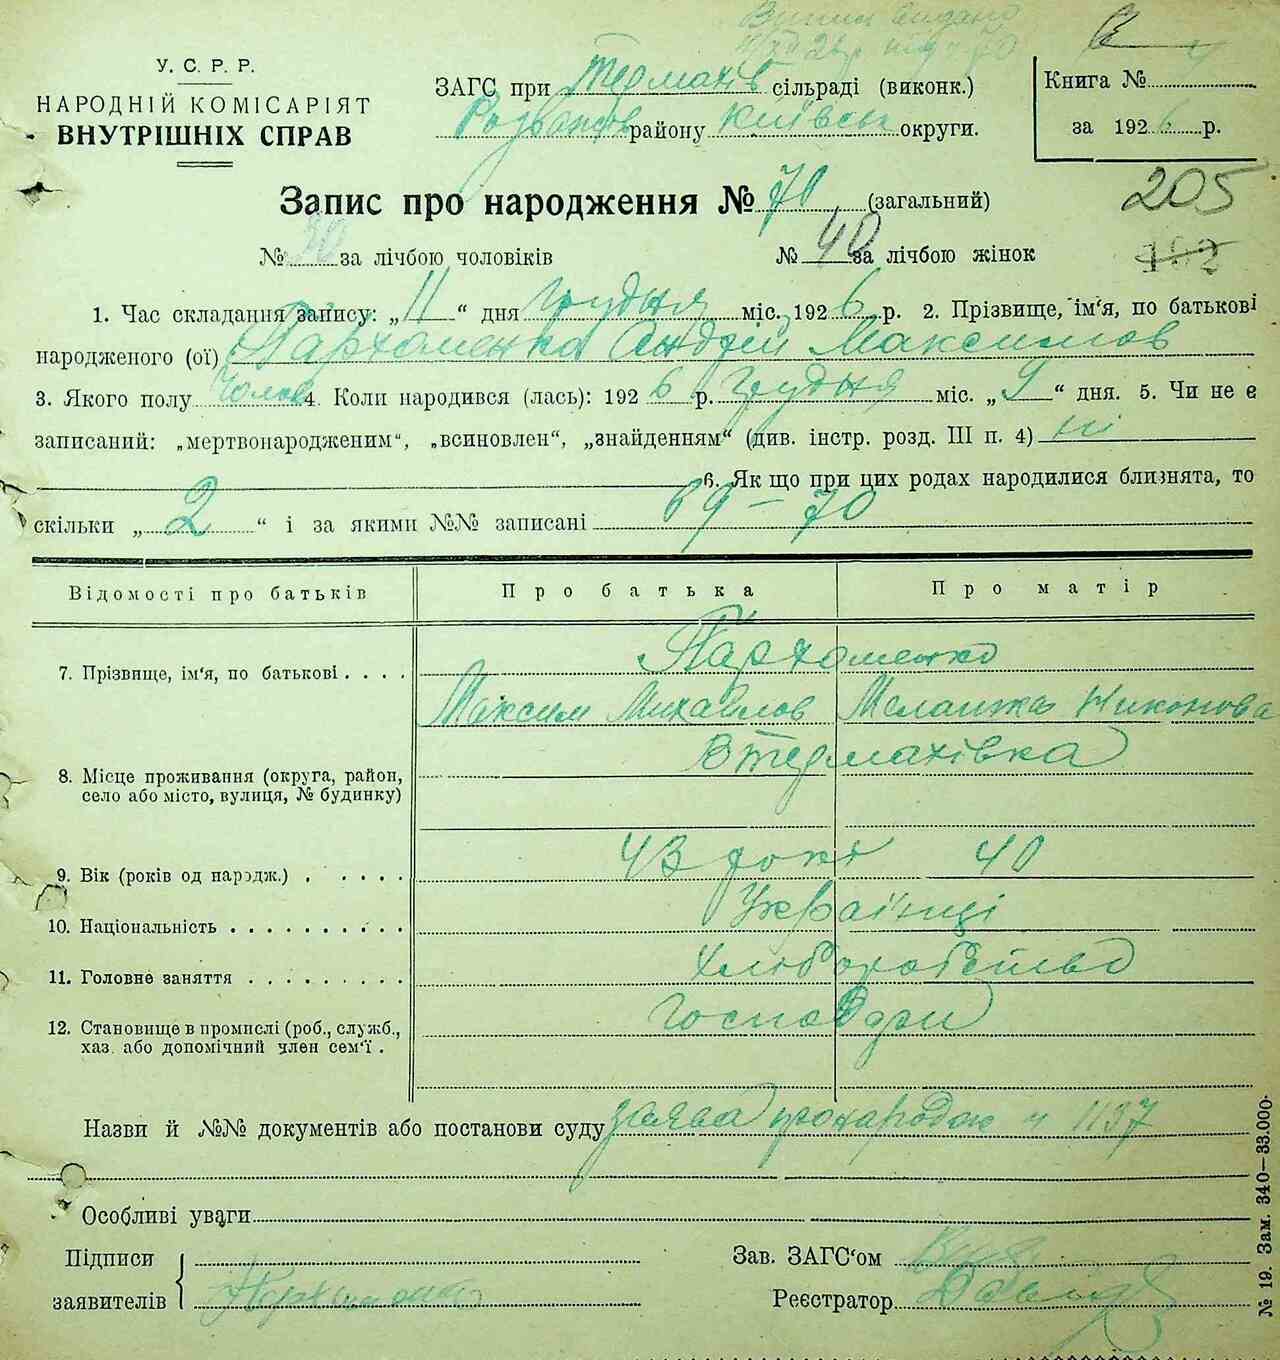 Випис видано
У. С. Р. Р.
НАРОДНІЙ КОМІСАРІЯТ
ВНУТРІШНІХ СПРАВ
ЗАГС при Термахів сільраді (виконк.)
Розважів району Київськ округи.
Книга №
за 1926 р.
205
102
Запис про народження № 70 (загальний)
№ 30 за лічбою чоловіків № 40 за лічбою жінок
1. Час складання запису: „11“ дня грудня міс. 1926 р. 2. Прізвище, ім‘я, по батькові
народженого (ої) Пархоменко Андрій Максимов
3. Якого полу Чолов 4. Коли народився (лась): 1926 р. Грудня міс. „9“ дня. 5. Чи не є
записаний: „мертвонародженим“, „всиновлен“, „знайденням“ (див. інстр. розд. III п. 4) ні
6. Як що при цих родах народилися близнята, то
скільки „2“ і за якими №№ записані 69 – 70
Відомості про батьків Про батька Про матір
7. Прізвище, ім‘я, по батькові . . . . Пархоменко
Максим Михайлов Меланка Никонова
8. Місце проживання (округа, район, село або місто, вулиця, № будинку) в Термахівка
9. Вік (років од нардж.) . . . . . 43 роки 40
10. Національність . . . . . . . . . . Українці
11. Головне заняття . . . . . . . . . Хліборобство
12. Становище в промислі (роб., служб., Господари
хаз. або допомічний член сем‘ї .
Назви й №№ документів або постанови суду заява 1137
Особливі уваги
Підписи
заявителів Пархоменко
Зав. ЗАГС‘ом
Реєстратор
№ 19. Зам. 340–33.000.